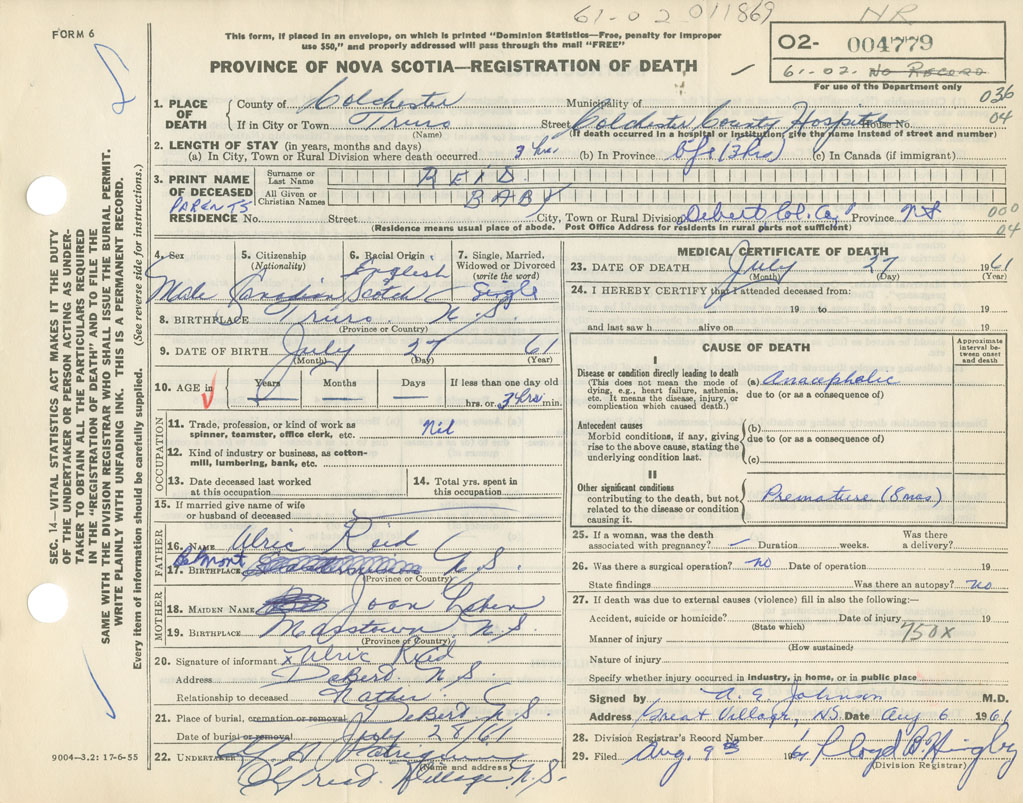 61-02 011869
NR
FORM 6
This form, if placed in an envelope, on which is printed "Dominion Statistics—Free, penalty for improper
use $50," and properly addressed will pass through the mail "FREE"
02- 004779
61-02. No Record
For use of the Department only
PROVINCE OF NOVA SCOTIA—REGISTRATION OF DEATH
036
04
1. PLACE OF DEATH
County of Colchester Municipality of
If in City or Town Truro Street Colchester County Hospital House No.
(Name) (If death occurred in a hospital or institution, give the name instead of street and number)
2. LENGTH OF STAY (in years, months and days)
(a) In City, Town or Rural Division where death occurred 3 hrs. (b) In Province life (3hrs) (c) In Canada (if immigrant)
3. PRINT NAME OF DECEASED
Surname or Last Name REID
All Given or Christian Names BABY
PARENTS
RESIDENCE No. Street City, Town or Rural Division Debert Col. Co. Province N.S
(Residence means usual place of abode. Post Office Address for residents in rural parts not sufficient)
000
04
4. Sex Male
5. Citizenship (Nationality) Canadian
6. Racial Origin English Scotch
7. Single, Married, Widowed or Divorced (write the word) Single
8. BIRTHPLACE Truro N.S.
(Province or Country)
9. DATE OF BIRTH July 27 61
(Month) (Day) (Year)
10. AGE in Years Months Days If less than one day old
hrs. or 3 hrs min.
OCCUPATION
11. Trade, profession, or kind of work as spinner, teamster, office clerk, etc. Nil
12. Kind of industry or business, as cotton-mill, lumbering, bank, etc.
13. Date deceased last worked at this occupation
14. Total yrs. spent in this occupation
15. If married give name of wife or husband of deceased
FATHER
16. NAME Ulric Reid
17. BIRTHPLACE Belmont N.S.
(Province or Country)
MOTHER
18. MAIDEN NAME Joan
19. BIRTHPLACE N.S.
(Province or Country)
20. Signature of informant x Ulric Reid
Address DeBert N.S.
Relationship to deceased Father
21. Place of burial, cremation or removal DeBert N.S.
Date of burial or removal July 28/61
22. UNDERTAKER
(Name and address)
Village N.S.
MEDICAL CERTIFICATE OF DEATH
23. DATE OF DEATH July 27 1961
(Month) (Day) (Year)
24. I HEREBY CERTIFY that I attended deceased from:
19 to 19
and last saw h alive on 19
CAUSE OF DEATH
Approximate interval between onset and death
I
Disease or condition directly leading to death
(This does not mean the mode of dying, e.g., heart failure, asthenia, etc. It means the disease, injury, or complication which caused death.)
(a) Anacepholic
due to (or as a consequence of)
Antecedent causes
Morbid conditions, if any, giving rise to the above cause, stating the underlying condition last.
(b)
due to (or as a consequence of)
(c)
II
Other significant conditions
contributing to the death, but not related to the disease or condition causing it.
Premature (8 mos)
25. If a woman, was the death associated with pregnancy? – Duration weeks. Was there a delivery?
26. Was there a surgical operation? no Date of operation 19
State findings Was there an autopsy? no
27. If death was due to external causes (violence) fill in also the following:—
Accident, suicide or homicide? Date of injury 19
(State which)
750X
Manner of injury
(How sustained)
Nature of injury
Specify whether injury occurred in industry, in home, or in public place
Signed by A. E. Johnson M.D.
Address Great Village, NS. Date Aug 6 1961
28. Division Registrar's Record Number
29. Filed Aug. 9th 61 Lloyd B
(Division Registrar)
9004—3.2: 17-6-55
SEC. 14—VITAL STATISTICS ACT MAKES IT THE DUTY
OF THE UNDERTAKER OR PERSON ACTING AS UNDER-
TAKER TO OBTAIN ALL THE PARTICULARS REQUIRED
IN THE "REGISTRATION OF DEATH" AND TO FILE THE
SAME WITH THE DIVISION REGISTRAR WHO SHALL ISSUE THE BURIAL PERMIT.
WRITE PLAINLY WITH UNFADING INK. THIS IS A PERMANENT RECORD.
Every item of information should be carefully supplied. (See reverse side for instructions.)